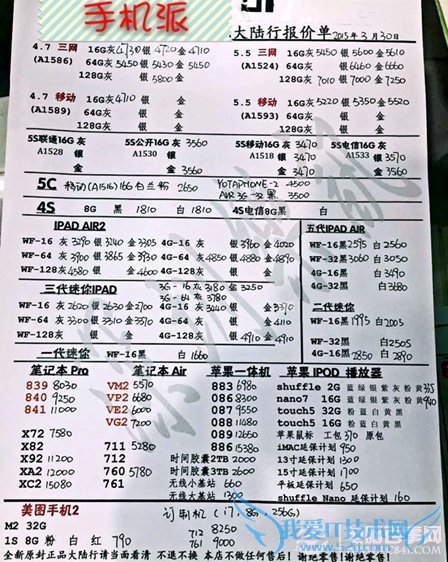 手机派
大陆行报价单 2015年3月30日
4.7 三网 16G灰4730 银 4720 金 4710
(A1586) 64G灰5450 银5430 金 5450
128G灰 银 5800 金
5.5 三网 16G灰 5450 银5600 金5610
(A1524) 64G灰 银6460 金6660
128G灰 7010 银7000 金7250
4.7 移动 16G灰4710 银 金
(A1589) 64G灰 银 金
128G灰 银 金
5.5 移动 16G灰5220 银5350 金5520
(A1593) 64G灰 银 金
128G灰 银 金
5S联通16G 灰
A1528 银
金
5S公开16G 灰 3560
A1530 银
金 3560
5S移动16G 灰 3470
A1518 银 3470
金
5S电信16G 灰 3570
A1533 银 3570
金 3560
5C 移动(A1516)16G 白兰粉 2650
YOTAPHONE-2 4500
AIR 3G-32 黑 3500
4S 8G 黑 1810 白 1810 4S电信8G黑 白
IPAD AIR2
WF-16 灰 3290 银 3240 金 3305
WF-64 灰 3900 银 3865 金 3930
WF-128灰 银4580 金 4600
4G-16 灰 银 3960 金 4020
4G-64 灰 4850 银 4880 金 4890
4G-128灰 银 金
五代IPAD AIR
WF-16黑2575 白 2560
WF-32黑3060 白3050
4G-16黑 白 3490
4G-32黑 白 3680
三代迷你IPAD
3G-16灰 3180 金 3250
3G-64灰 3780
WF-16 灰 2620 银 2630 金 2700
WF-64 灰 3300 银 3310 金 3570
WF-128灰 银 金
4G-16灰 3440 银 金 3370
4G-64 灰 银 金 4110
4G-128灰 银 4910 金 4910
二代迷你
WF-16黑1995 白2005
WF-32黑 白 2505
4G-16黑 2850 白 2890
一代迷你 WF-16黑 白 1660
笔记本 Pro 笔记本 Air 苹果一体机 苹果 IPOD 播放器
839 8030 VM2 5570 883 6980 shuffle 2G 蓝绿银紫灰粉黄335
840 9250 VP2 6680 086 8330 nano7 16G 蓝绿银紫灰粉黄940
841 11000 VE2 6000 087 9550 touch5 32G 粉蓝白黄黑
VG2 7200 088 11480 touch5 16G 蓝白黄黑
X72 7580 089 12650 苹果鼠标 工包370 原包
X82 711 5280 886 5380 iMAC延保计划 950
XX92 11200 712 时间胶囊2TB 2000 13寸延保计划 1300
XA2 12000 760 5780 时间胶囊3TB 2600 15寸延保计划 1700
XC2 15080 761 无线小基站 660 平板延保计划 650
无线大基站 1300 shuffle Nano 延保计划 160
美图手机2
订制机 (i7.8G.256G)
M2 32G 712 8250
1S 8G 粉 白 红 790 761 9000
全新原封正品大陆行请当面看清 不退不换 本店不做任何售后! 谢绝零售!谢绝零售!
我爱IT技术网